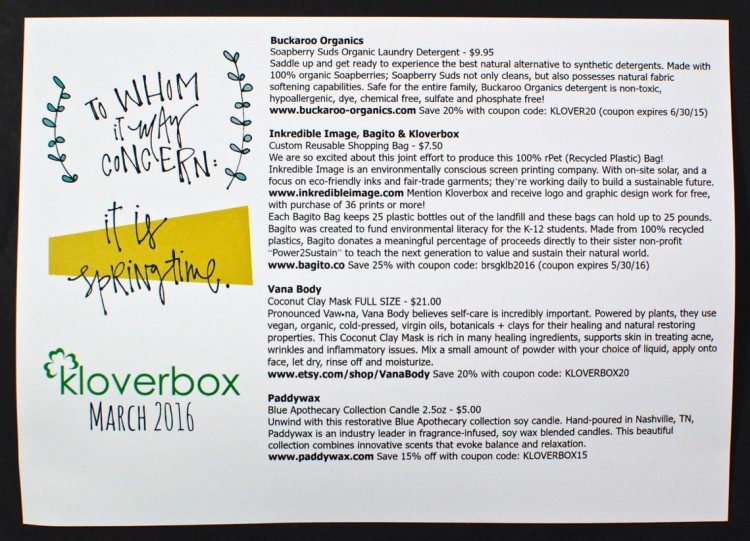 TO WHOM
it MAY
CONCERN:
it is
springtime.
kloverbox
MARCH 2016
Buckaroo Organics
Soapberry Suds Organic Laundry Detergent - $9.95
Saddle up and get ready to experience the best natural alternative to synthetic detergents. Made with
100% organic Soapberries; Soapberry Suds not only cleans, but also possesses natural fabric
softening capabilities. Safe for the entire family, Buckaroo Organics detergent is non-toxic,
hypoallergenic, dye, chemical free, sulfate and phosphate free!
www.buckaroo-organics.com Save 20% with coupon code: KLOVER20 (coupon expires 6/30/15)
Inkredible Image, Bagito & Kloverbox
Custom Reusable Shopping Bag - $7.50
We are so excited about this joint effort to produce this 100% rPet (Recycled Plastic) Bag!
Inkredible Image is an environmentally conscious screen printing company. With on-site solar, and a
focus on eco-friendly inks and fair-trade garments; they're working daily to build a sustainable future.
www.inkredibleimage.com Mention Kloverbox and receive logo and graphic design work for free,
with purchase of 36 prints or more!
Each Bagito Bag keeps 25 plastic bottles out of the landfill and these bags can hold up to 25 pounds.
Bagito was created to fund environmental literacy for the K-12 students. Made from 100% recycled
plastics, Bagito donates a meaningful percentage of proceeds directly to their sister non-profit
"Power2Sustain" to teach the next generation to value and sustain their natural world.
www.bagito.co Save 25% with coupon code: brsgklb2016 (coupon expires 5/30/16)
Vana Body
Coconut Clay Mask FULL SIZE - $21.00
Pronounced Vaw•na, Vana Body believes self-care is incredibly important. Powered by plants, they use
vegan, organic, cold-pressed, virgin oils, botanicals + clays for their healing and natural restoring
properties. This Coconut Clay Mask is rich in many healing ingredients, supports skin in treating acne,
wrinkles and inflammatory issues. Mix a small amount of powder with your choice of liquid, apply onto
face, let dry, rinse off and moisturize.
www.etsy.com/shop/VanaBody Save 20% with coupon code: KLOVERBOX20
Paddywax
Blue Apothecary Collection Candle 2.5oz - $5.00
Unwind with this restorative Blue Apothecary collection soy candle. Hand-poured in Nashville, TN,
Paddywax is an industry leader in fragrance-infused, soy wax blended candles. This beautiful
collection combines innovative scents that evoke balance and relaxation.
www.paddywax.com Save 15% off with coupon code: KLOVERBOX15